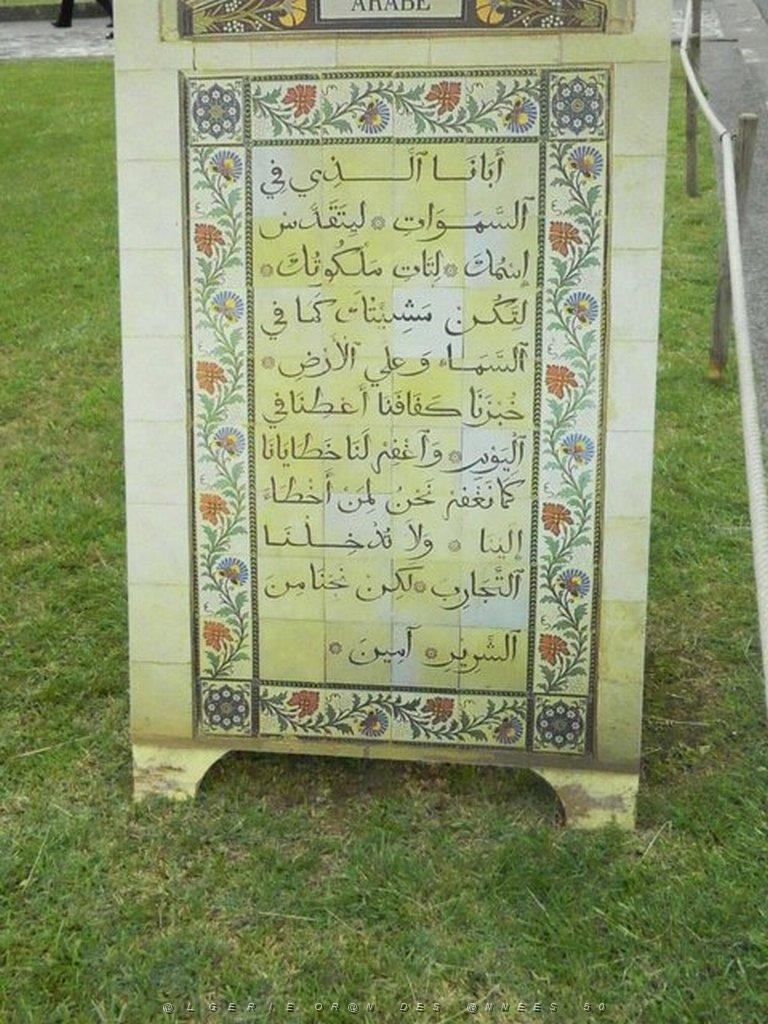 ARABE
أَبَانَا ٱلَّـــذِي فِي
ٱلسَّمَـوَاتِ * لِيَتَقَدَّسْ
إِسْمُكَ * لِتَاتِ مَلَكُوتُكَ *
لِتَكُـنْ مَشِيئَتُكَ كَمَا فِي
ٱلسَّمَـاءِ وَ عَلَي ٱلْأَرْضِ *
خُبْزَنَا كَفَافَنَا أَعْطِنَا فِي
ٱلْيَوْمِ * وَٱغْفِرْ لَنَا خَطَايَانَا
كَمَا نَغْفِرْ نَحْنُ لِمَنْ أَخْطَاءَ
إِلَينا * وَلَا تُدْخِـلْـنَـا
ٱلتَّجَارِبِ * لَكِنْ نَجِّنَا مِنَ
ٱلشَّرِيرِ * آمِينَ *
@LGERIE OR@N DES @NNEES 50